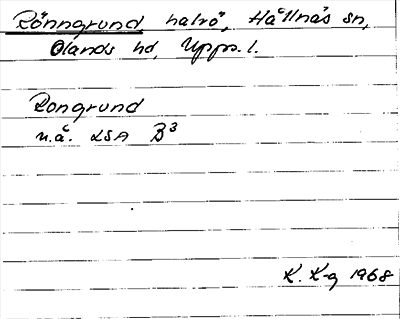 Rönngrund halvö, Hållnäs sn,
Olands hd, Upps. l.
Rongrund
n.å. LSA B³
K. K-g 1968